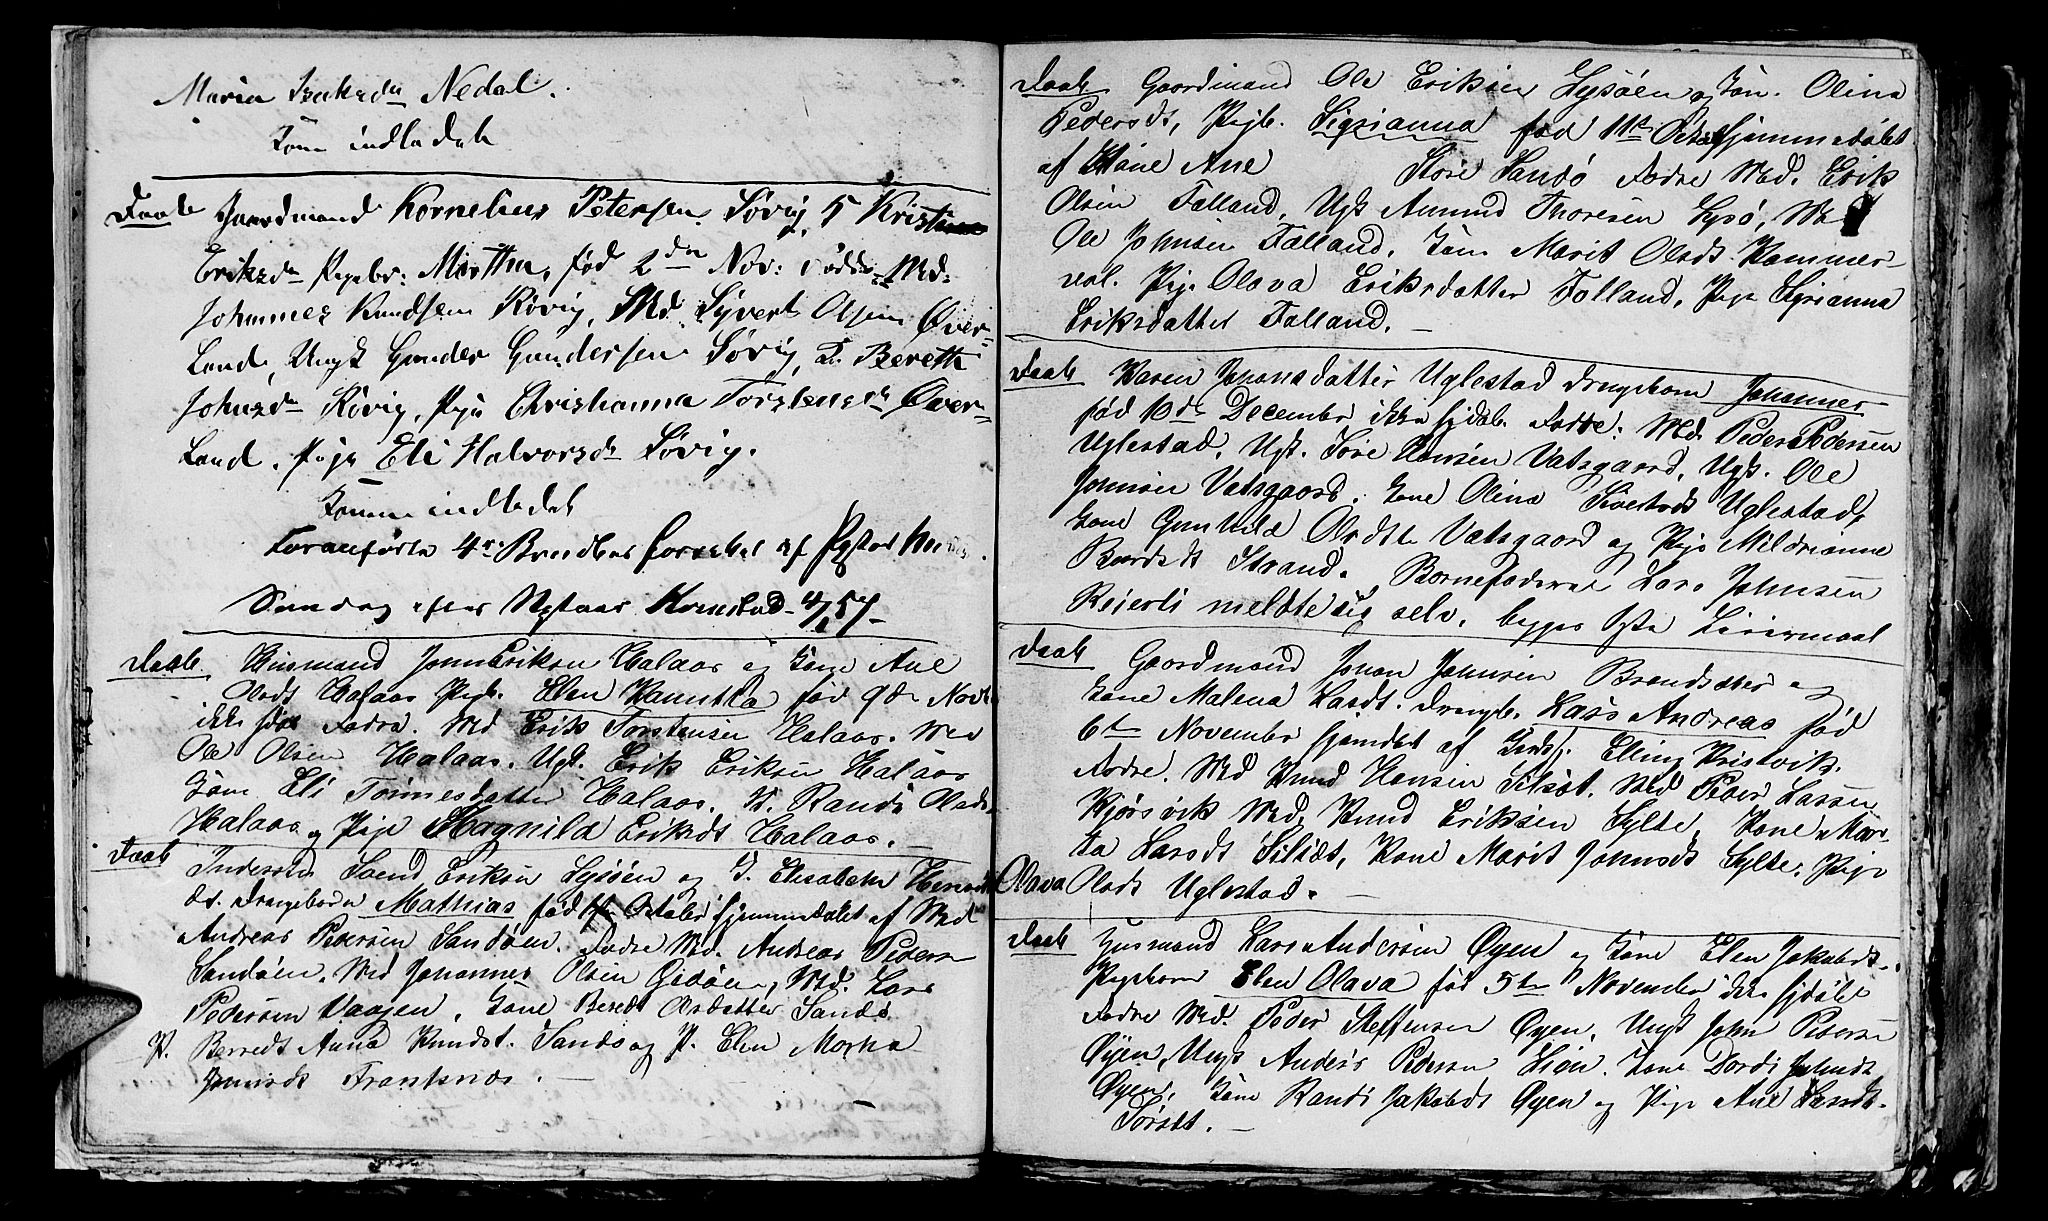 Maria Isaksdn Nedal.
Kone indledet
Daab Gaardmand Kornelius Petersen Søvig, &
Eriksdn Pigebr: Martha, fød 2den Nov:
Johannes Knudsen Røvig, Md Syvert Olsen Øver-
Land, Ungk Gunder Gundersen Søvig, K. Berett
Johnsdn Røvig, Pige Christianna Torstensdn Øver-
Land. Pige Eli Halvorsdn Søvig.
Konen indledet
Foranførte 4re Brudebar forrettet af
Søndag efter Nytaar Kornstad 4/1 57
Daab Husmand John Eriksen Halaas og Kone Ane
Olsdt Halaas Pigb. Elen fød 9de Novb
ikke hjdøt Fadre. Md Erik Torstensen Halaas. Md
Ole Olsen Halaas. Ugk. Erik Eriksen Halaas
Kone Eli Tønnesdatter Halaas. K. Randi Olsdt
Halaas og Pige Magnild Eriksdt Halaas. —
Daab Inderst Svend Eriksen Lysøen og K. Elisabeth Henriks
dt. Drengebarn Mathias fød Octaber hjemmedøbt af Md
Andreas Pedersen Sandøen. Fadre Md. Andreas Peders
Sandøen. Md Johannes Olsen Gidøen, Md. Lars
Pedersen Vaagen, Kone Beredt Olsdatter Sandø
P. Berredt Anna Knudst. Sandø og P. Elen Marha
Jonnsdt Franknæs. —
Daab Gaardmand Ole Eriksen Lysøen og Kon. Olina
Pedersdt, Pigb. Sirianna fød 11te Octob hjemmedøbt
af Kone Ane Store Sandø Fadre Md. Erik
Olsen Falland, Ugk Amund Thoresen Lysø, Md
Ole Johnsen Falland, Kone Marit Olsdt Hammer-
vol. Pige Olava Eriksdatter Falland, Pige Syrianna
Eriksdatter Falland. —
Daab Karen Johansdatter Uglestad Drengebarn Johannes
fød 10de December ikke hjdøb. Fadre: Md. Peder Pedersen
Uglestad, Ugk. Tore Hansen Vatsgaard, Ugk. Ole
Johnsen Vatsgaard. Kone Olina Sivertsdt Uglestad,
Kone Gunhild Olsdt Vatsgaard og Pige Mildrianne
Baardsdt Strand. Barnefaderen Lars Johnsen
Reierli meldte sig selv, begges 1ste Leiermaal
Daab Gaardmand Johan Johnsen Brandsæter og
Kone Malena Larsdt. Drengb. Lars Andreas fød
6te November hjemdøbt af Elling Kristvik.
Fadre. Md Knud Hansen Silsæt. Md Peder Larsen
Kjørsvik Md, Knud Eriksen Sylte, Kone Mar-
ta Larsdt Silsæt, Kone Marit Johnsdt Sylte, Pige
Olava Olsdt Uglestad. —
Daab Husmand Lars Andersen Øyen og Kone Elen Jakobsdt.
Pigebarn Elen Olava fød 5te November ikke hjdøbt
Fadre Md. Peder Steffensen Øyen, Ungk John Peders
Øyen, Ungk Anders Pedersen Lien. Kone Dordi Johnsdt
Øyen, Kone Randi Jakobsdt Øyen og Pige Ane Larsdt.
Torset. —